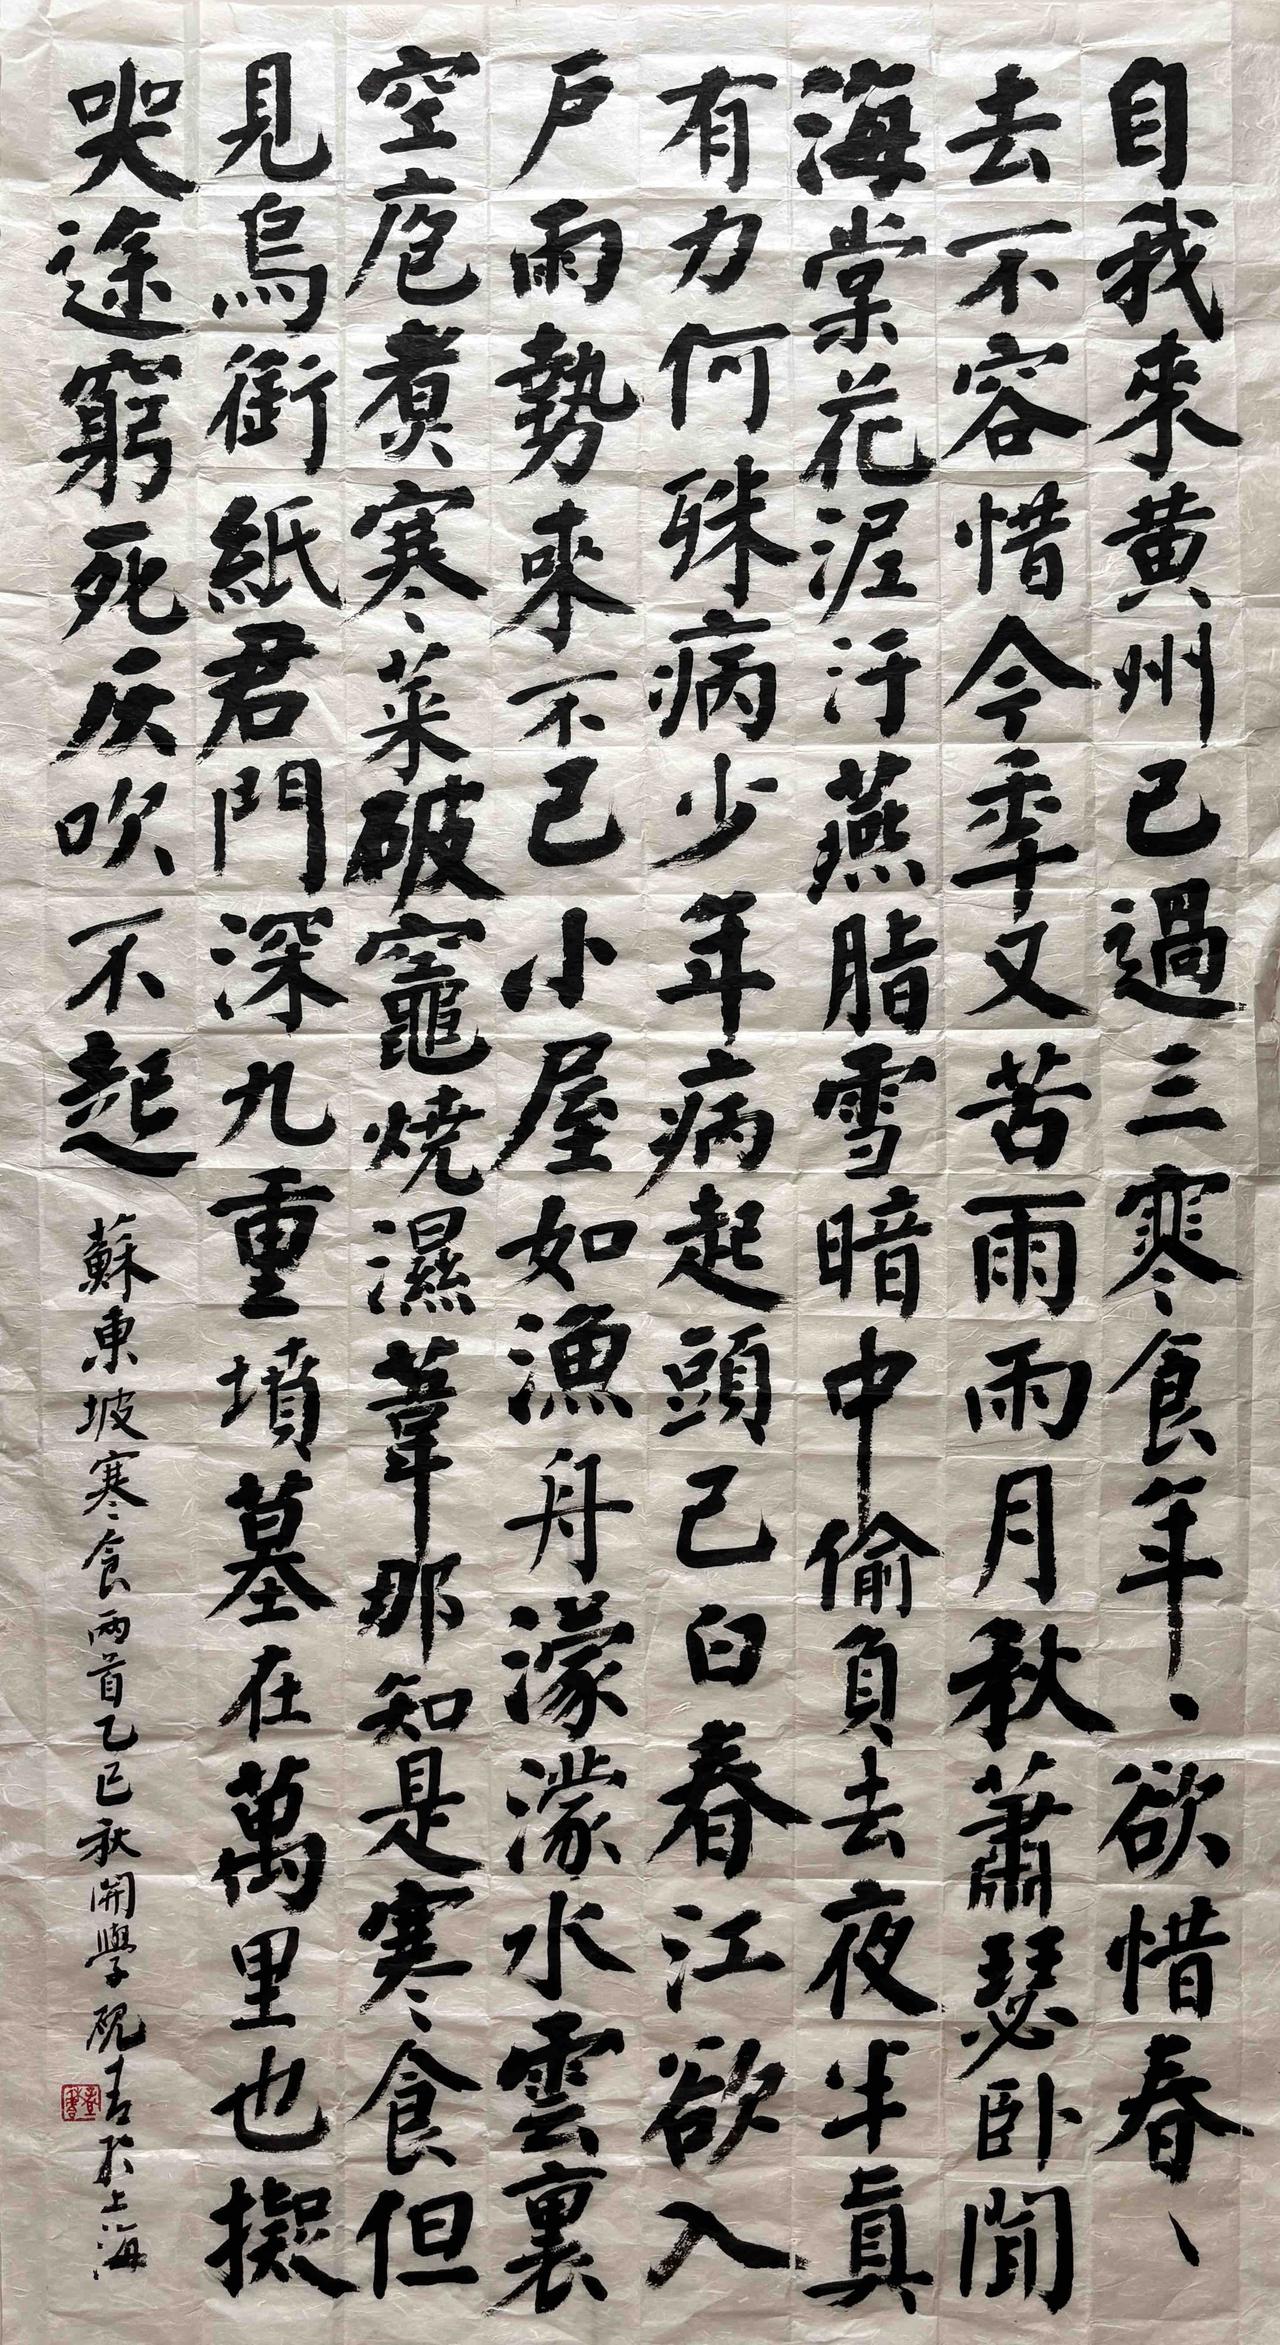 自我來黃州已過三寒食年、欲惜春、
去不容惜今季又苦雨雨月秋蕭瑟卧聞
海棠花泥汙燕脂雪暗中偷負去夜半真
有力何殊病少年病起頭已白春江欲入
戶雨勢來不已小屋如漁舟濛濛水雲裏
空庖煮寒菜破竈燒濕葦那知是寒食但
見烏銜紙君門深九重墳墓在萬里也擬
哭途窮死灰吹不起
蘇東坡寒食兩首乙巳秋開學硯青於上海